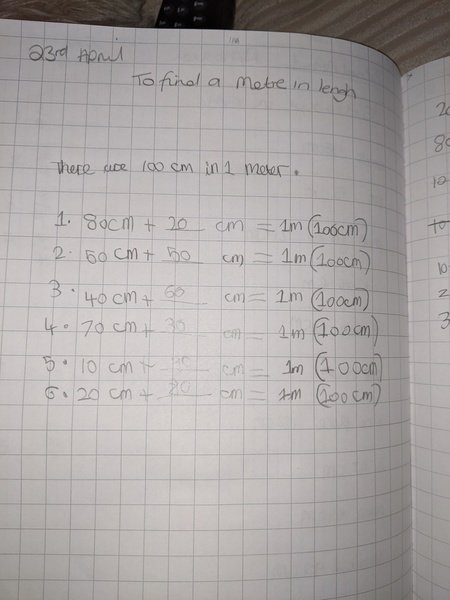 23rd April
To find a Metre in lengh
There are 100 cm in 1 meter.
1. 80cm + 20 cm = 1m (100cm)
2. 50 cm + 50 cm = 1m (100cm)
3. 40 cm + 60 cm = 1m (100cm)
4. 70 cm + 30 cm = 1m (100cm)
5. 10 cm + cm = 1m (100cm)
6. 20 cm + cm = 1m (100cm)
20
10
10
2
3